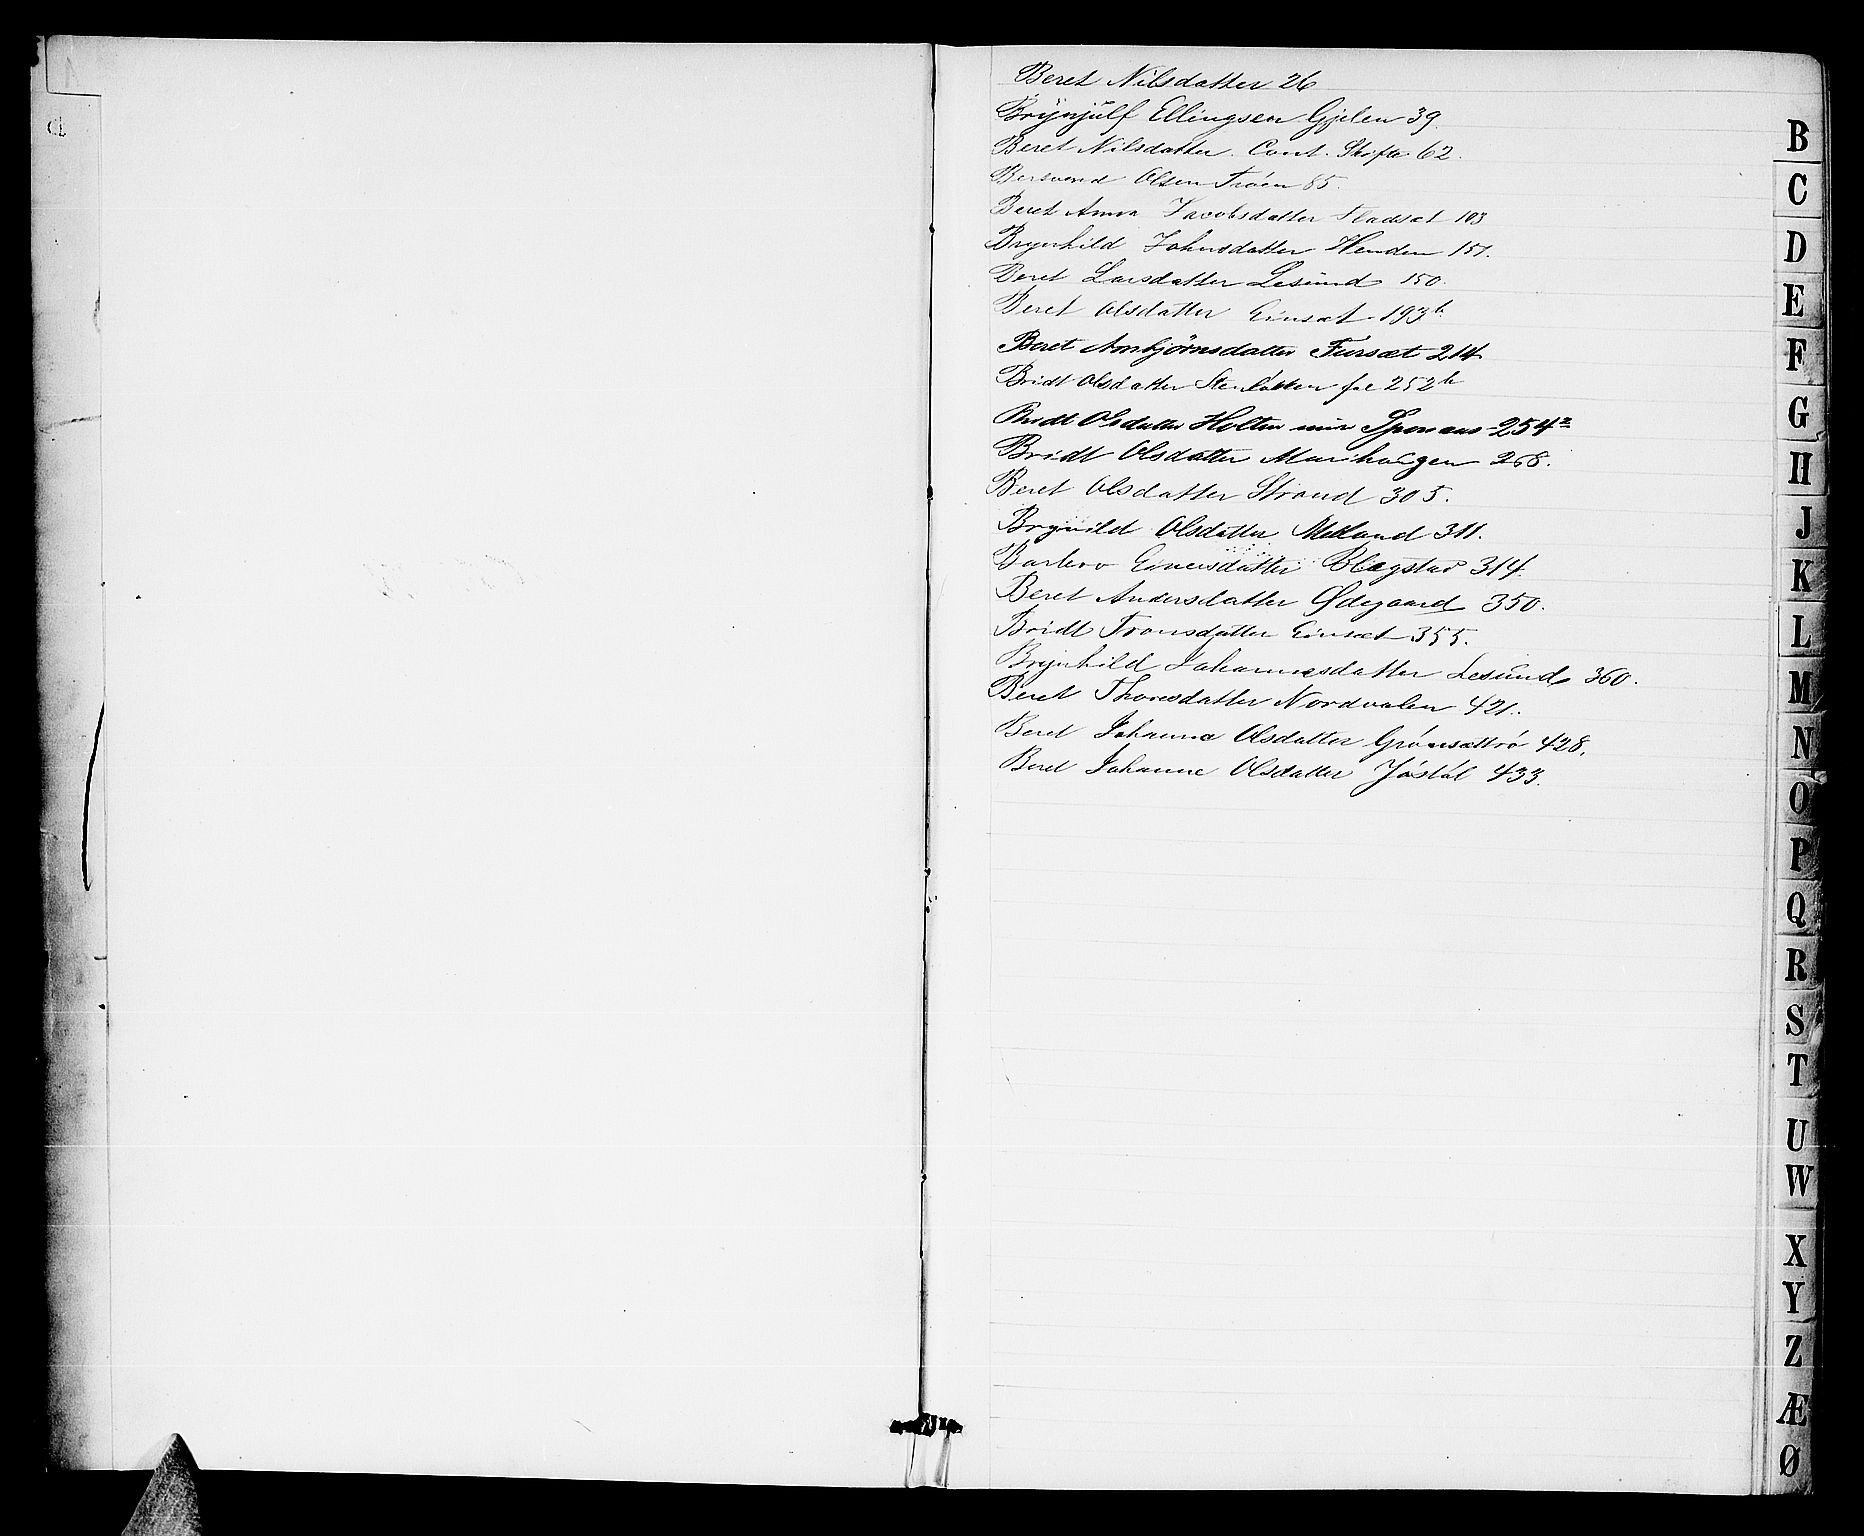 Beret Nilsdatter 26
Brynjülf Ellingsen Gjelen 39.
Beret Nilsdatter. Cont. Skifte 62.
Bersvend Olsen Trøen 85.
Beret Anna Jacobsdatter Fladsæt 103
Brynhild Johnsdatter Henden 151.
Beret Larsdatter Lesünd 150.
Beret Olsdatter Einsæt 193b.
Beret Arnbjörnsdatter Fursæt 214
Bridt Olsdatter fol 252b
Bridt Olsdatter Holten 254a
Bridt Olsdatter Marihaugen 268.
Beret Olsdatter Strand 305.
Brynild Olsdatter Melland 311.
Barbro Einersdatter Blegstad 314.
Beret Andersdatter Ødegaard 350.
Bridt Tronsdatter Einsæt 355.
Brynhild Johannesdatter Lesünd 360.
Beret Thoresdatter Nordvalen 421.
Beret Johanna Olsdatter Grónsættró 428.
Beret Johanne Olsdatter Jóstól 433.
B
C
D
E
F
G
H
J
K
L
M
N
O
P
Q
R
S
T
U
W
X
Y
Z
Æ
Ø